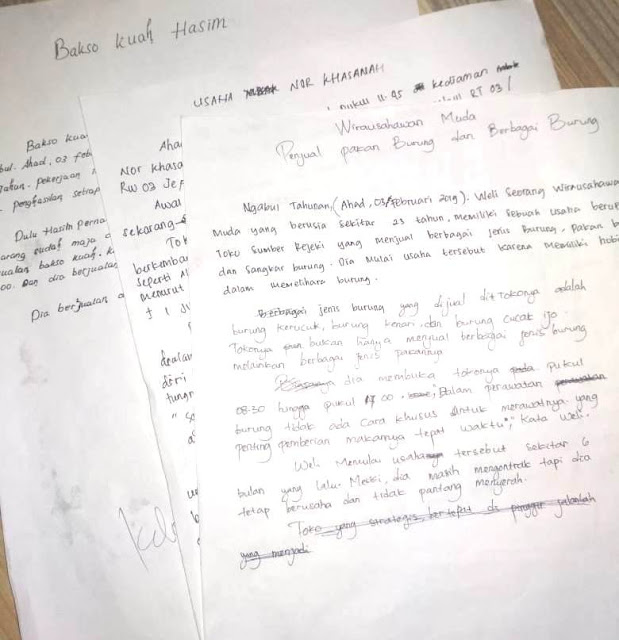 Bakso kuah Hasim
Bakso kua
bul. Ahad, 03 Feb
tahun. pekerjaan
penghasilan setiap
Dulu Hasim Perna
arang sudah maju d
ualan bakso kuah. k
00. Dan dia berjualan
Dia berjualan d
USAHA NOR KHASANAH
pukul 11.45 kediaman
RT 03/
Ahad
Nor Khasa
RW 02 Jep
Awal
sekarang
Tok
berkemban
seperti
menurut
+ 1 JU
dealan
diri
tungn
" So
Wirausahawan Muda
Penjual pakan Burung dan Berbagai Burung
Ngabul Tahunan, (Ahad, 03/Februari 2019). Weli Seorang Wirausahawa
Muda yang berusia sekitar 23 tahun, memiliki sebuah usaha berup
Toko Sumber Rejeki yang menjual berbagai jenis Burung, Pakan b
dan Sangkar burung. Dia Mulai usaha tersebut karena memiliki hobi
dalam memelihara burung.
Berbagai jenis burung yang dijual diTokonya adalah
burung kerucuk, burung kenari dan burung cucak ijo.
Tokonya bukan hanya menjual berbagai jenis burung
melainkan berbagai jenis pakannya
dia membuka tokonya pukul
08.30 hingga pukul 17.00. "Dalam perawatan
burung tidak ada cara khusus untuk merawatnya yang
penting pemberian makannya tepat waktu", kata Weli.
Weli Memulai usahanya tersebut sekitar 6
bulan yang lalu. Meski, dia masih mengontrak tapi dia
tetap berusaha dan tidak pantang menyerah.
Toko yang strategis bertepat di pinggir jalanlah
yang menjadi